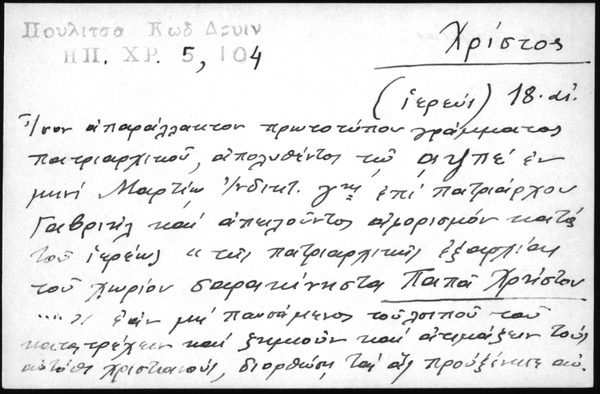 Πουλίτσα Κωδ Δρυιν
ΗΠ. ΧΡ. 5, 104
Χρίστος
(ἱερεύς) 18. αἰ.
Ἴσον ἀπαράλλακτον πρωτοτύπου γράμματος
πατριαρχικοῦ, ἀπολυθέντος τῷ αψπέ ἐν
μηνί Μαρτίῳ Ἰνδικτ. γῃ ἐπί πατριάρχου
Γαβριήλ καί ἀπειλοῦντος ἀφορισμόν κατά
τοῦ ἱερέως "τῆς πατριαρχικῆς ἐξαρχίας
τοῦ χωρίου σαρακήνηστα Παπᾶ Χρήστου
....." ἐάν μή παυσάμενος τοῦ λοιποῦ τοῦ
κατατρέχειν καί ζημιοῦν καί ἀτιμάζειν τούς
αὐτόθι χριστιανούς, διορθώσῃ τάς ἅς προὐξένησε αὐ.